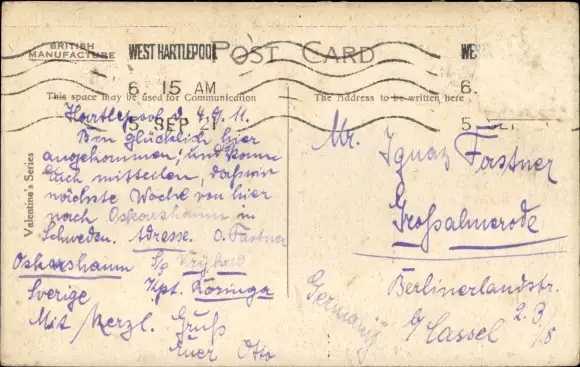 BRITISH
MANUFACTURE
WEST HARTLEPOOL
6.15 AM
5 SEP 21
POST CARD
WES
6.
5.
This space may be used for Communication
The Address to be written here
Valentine's Series
Hartlepool d. 4.9.
Bin glücklich hier
angekommen, und kann
Euch mitteilen, daß wir
nächste Woche von hier
nach Oskarshamn in
Schweden. Adresse. O. Fastner
Oskarshamn S/g Vrijheid
Sverige Kpt. Koringa
Mit herzl. Gruß
Euer Otto
Mr. Ignaz Fastner
Großalmerode
Berlinerlandstr.
b/Cassel
Germany